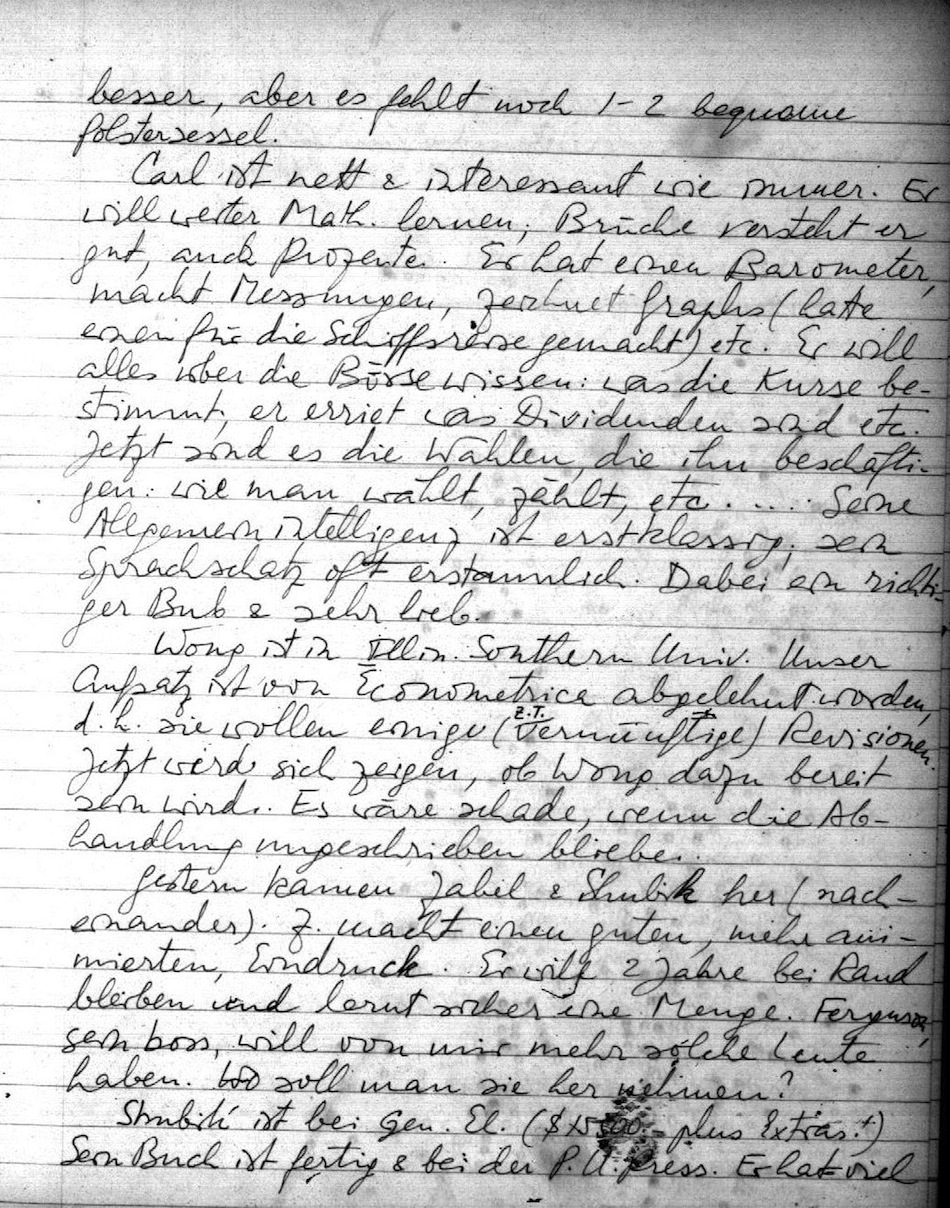 besser, aber es fehlt noch 1-2 bequeme
Polstersessel.
Carl ist nett & interessant wie immer. Er
will weiter Math. lernen; Brüche versteht er
gut, auch Prozente. Er hat einen Barometer,
macht Messungen, zeichnet Graphs (hatte
einen für die Schiffsreise gemacht) etc. Er will
alles über die Börse wissen: was die Kurse be-
stimmt, er erriet was Dividenden sind etc.
Jetzt sind es die Wahlen, die ihn beschäfti-
gen: wie man wählt, zählt, etc..... Seine
Allgemeinintelligenz ist erstklassig, sein
Sprachschatz oft erstaunlich. Dabei ein richti-
ger Bub & sehr lieb.
Wong ist in Illin. Southern Univ. Unser
Aufsatz ist von Econometrica abgelehnt worden,
d.h. sie wollen einige (z.T. vernünftige) Revisionen.
Jetzt wird sich zeigen, ob Wong dazu bereit
sein wird. Es wäre schade, wenn die Ab-
handlung ungeschrieben bliebe.
Gestern kamen Zabel & Shubik her (nach-
einander). Z. macht einen guten, mehr ani-
mierten, Eindruck. Er will 2 Jahre bei Rand
bleiben und lernt sicher eine Menge. Ferguson,
sein boss, will von mir mehr solche Leute
haben. Wo soll man sie her nehmen?
Shubik ist bei Gen. El. ($ 15000.- plus Extras!)
Sein Buch ist fertig & bei der P.U. Press. Er hat viel